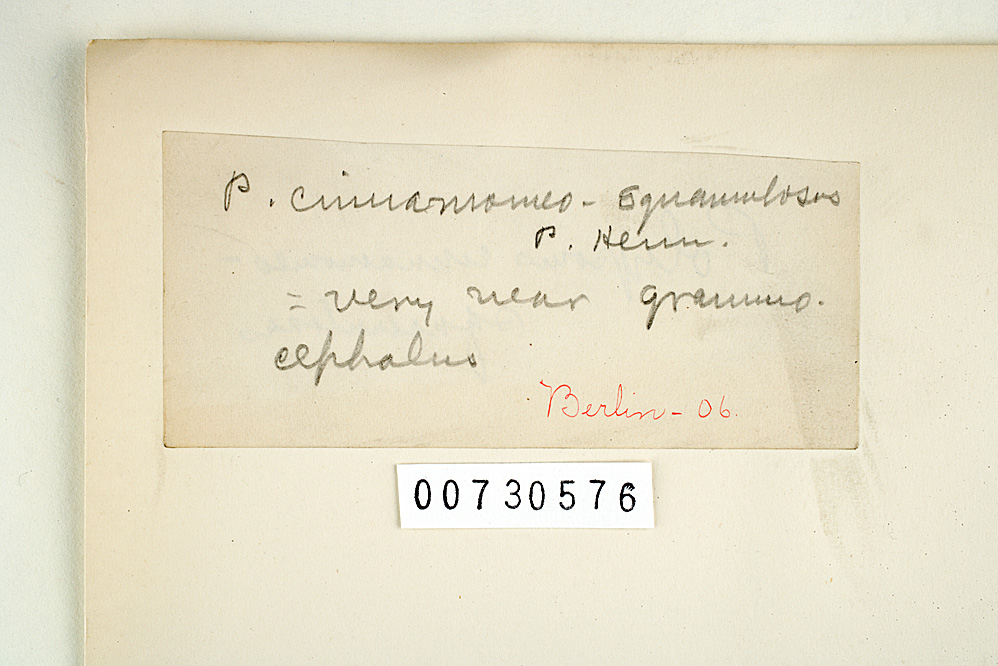 P. cinnamomeo-squamulosus
P. Henn.
= very near grammo-
cephalus
Berlin - 06.
00730576